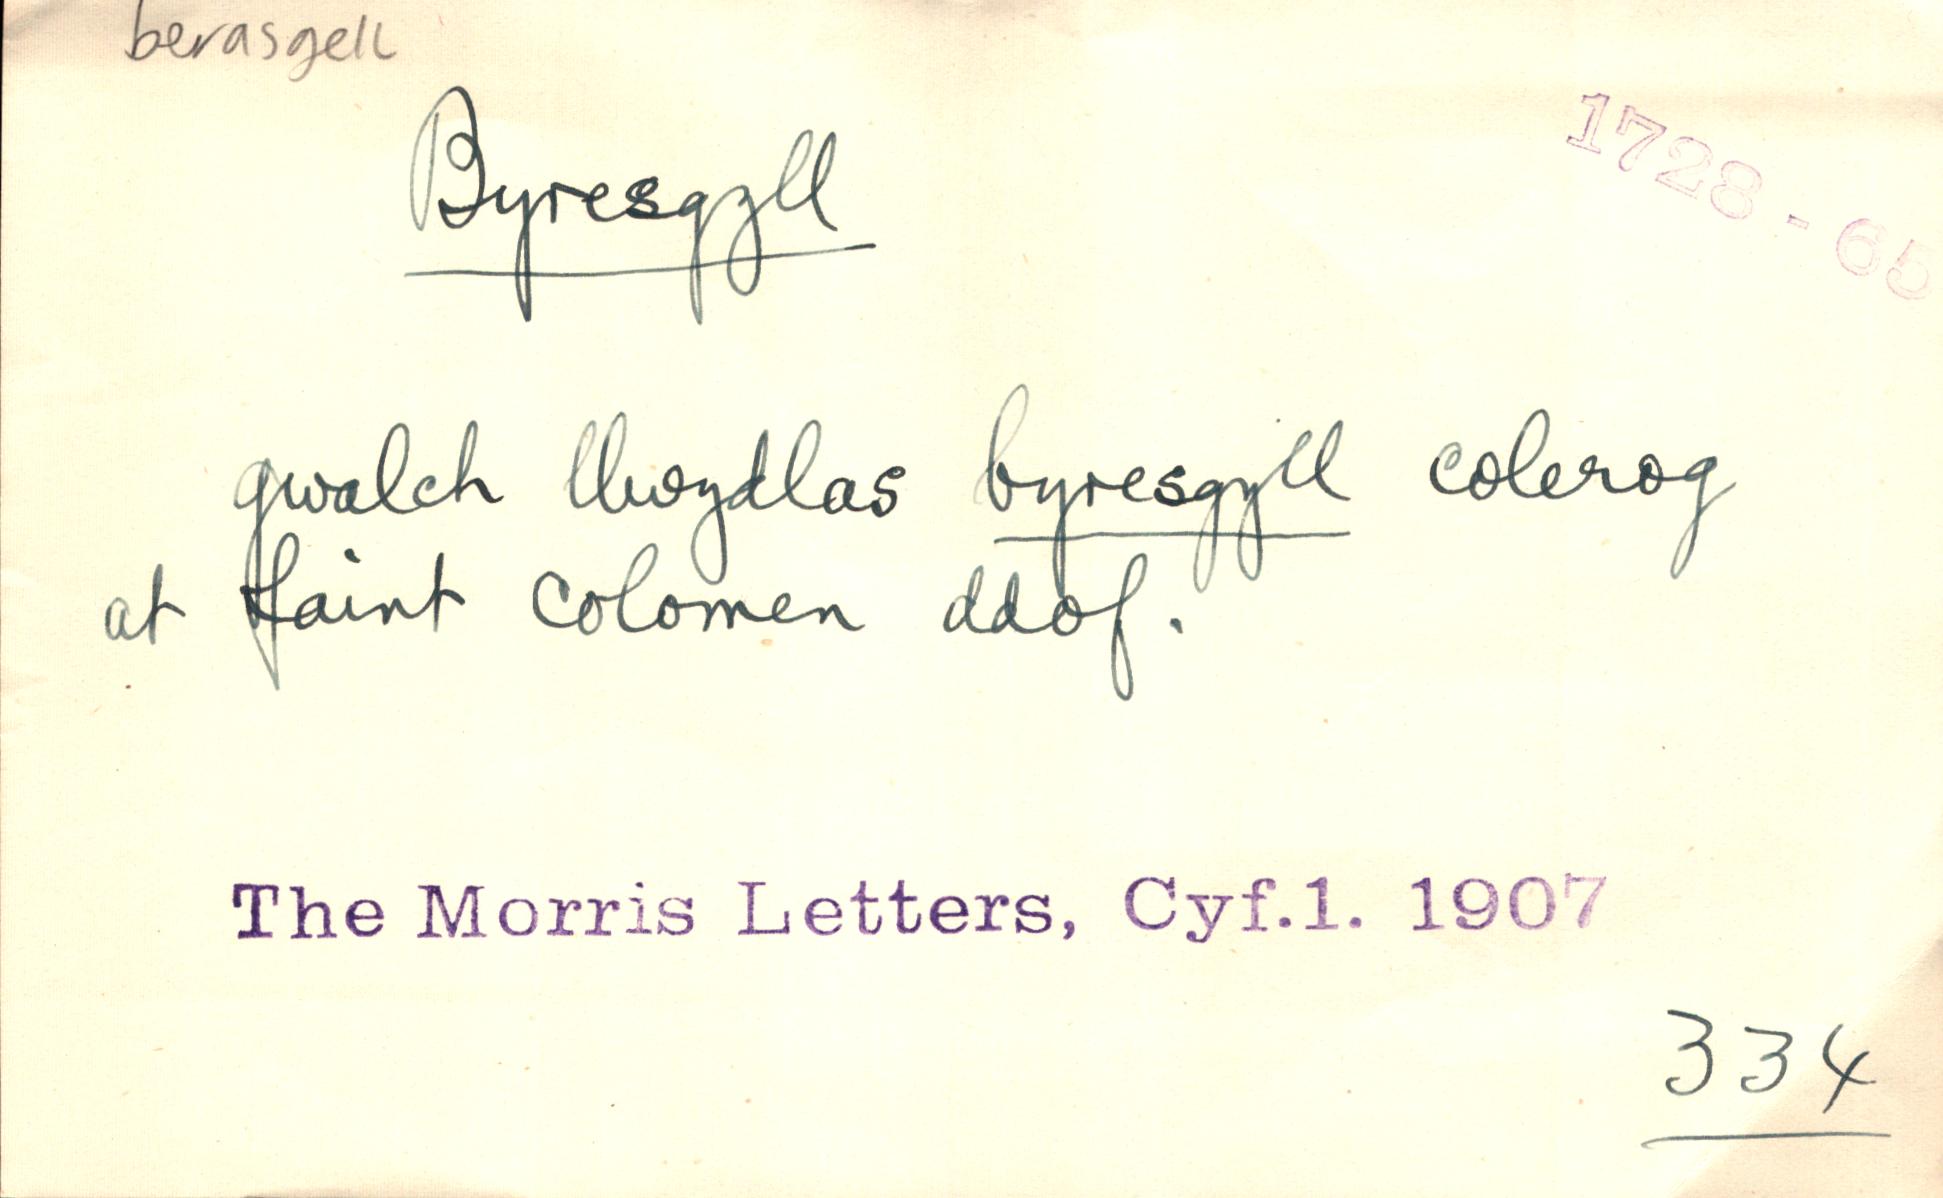 berasgell
Byresgyll
1728 - 65
gwalch llwydlas byresgyll colerog
at faint colomen ddof.
The Morris Letters, Cyf.1. 1907
334